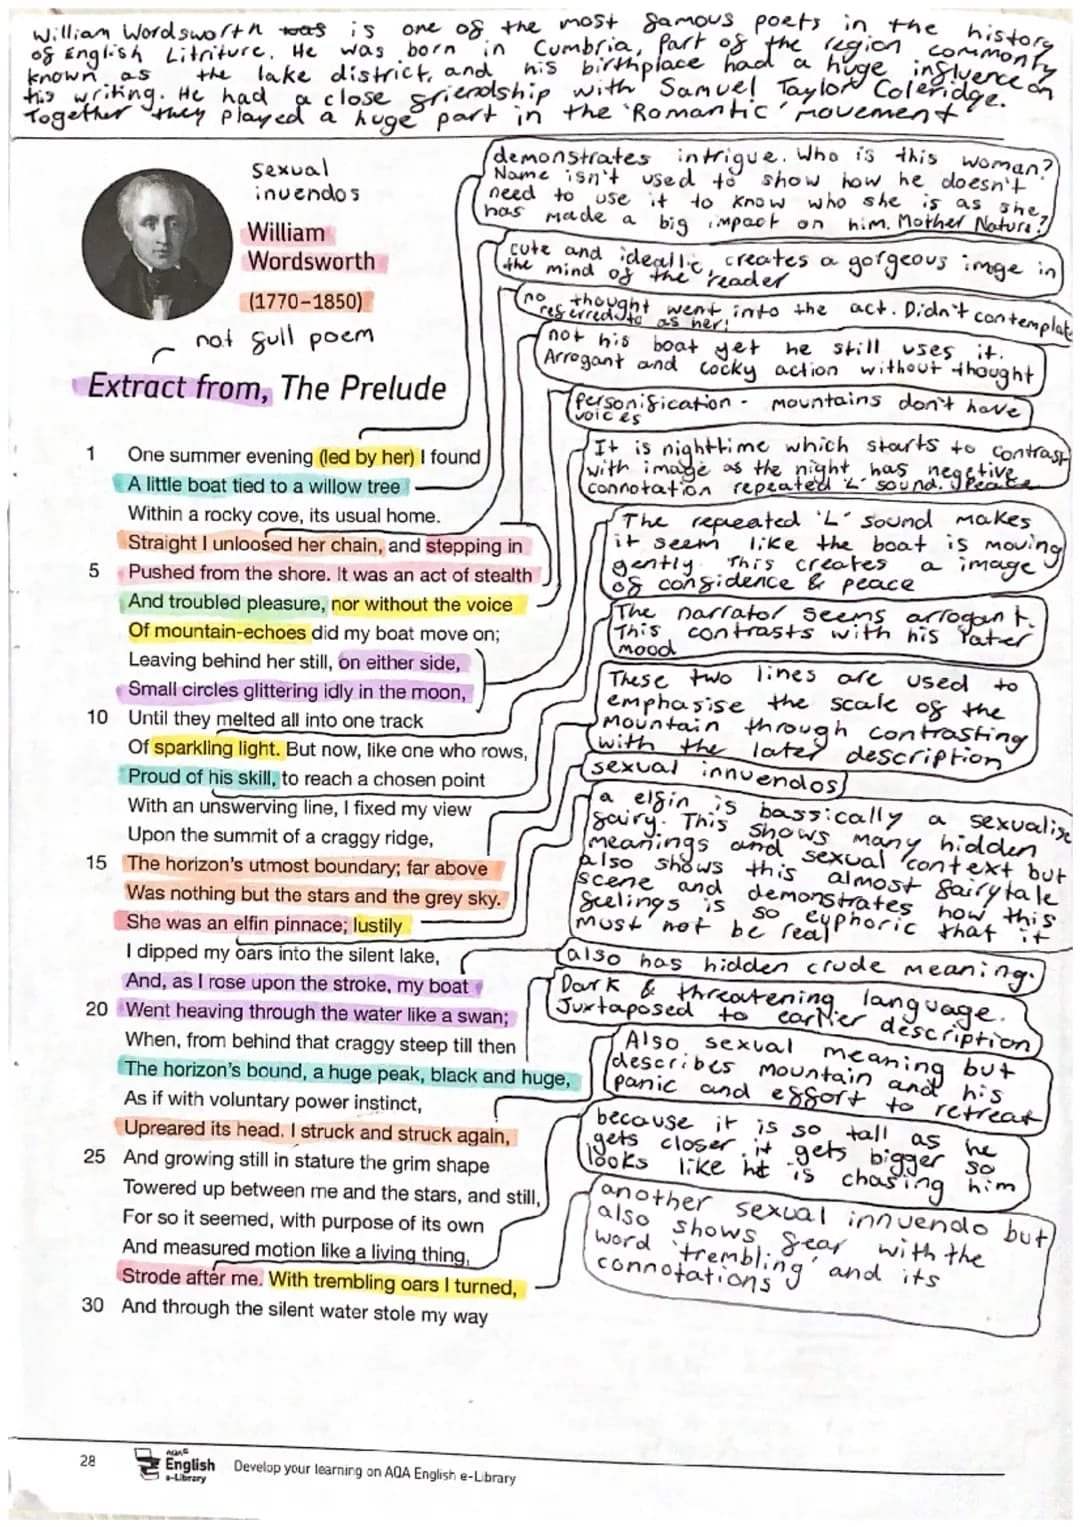 William Wordsworth was is one of the most famous poets in the history
of English Litriture. He was born in Cumbria, Part of the region commonly
known as the lake district, and his birthplace had a huge influence on
his writing. He had a close friendship with Samuel Taylor Coleridge.
Together they played a huge part in the 'Romantic' movement
sexual
inuendos
William
Wordsworth
(1770–1850)
not full poem
Extract from, The Prelude
demonstrates intrigue. Who is this woman?
Name isn't used to show how he doesn't
need to use it to know who she is as she
has made a big impact on him. Mother Nature?
cute and ideallic, creates a gorgeous imge in
the mind of the reader
no thought went into the act. Didn't contemplate
referred to as her!
not his boat yet he still uses it.
Arrogant and cocky action without thought
Personification - mountains don't have
voices
It is nighttime which starts to contrast
with image as the night has negetive
connotation repeated 'L' sound. Peace
The repeated 'L' sound makes
it seem like the boat is moving
gently. This creates a image
of confidence & peace
The narrator seems arrogant.
This contrasts with his later
mood
These two lines are used to
emphasise the scale of the
mountain through contrasting
with the later description
sexual innuendos
a elfin is bassically a sexualise
fairy. This shows many hidden
meanings and sexual context but
also shows this almost fairytale
scene and demonstrates how this
feelings is so euphoric that it
must not be real
also has hidden crude meaning.
Dark & threatening language.
Juxtaposed to earlier description
Also sexual meaning but
describes mountain and his
panic and effort to retreat
because it is so tall as he
gets closer it gets bigger so
looks like it is chasing him
another sexual innuendo but
also shows fear with the
word 'trembling' and its
connotations
1 One summer evening (led by her) I found
A little boat tied to a willow tree
Within a rocky cove, its usual home.
Straight I unloosed her chain, and stepping in
5 Pushed from the shore. It was an act of stealth
And troubled pleasure, nor without the voice
Of mountain-echoes did my boat move on;
Leaving behind her still, on either side,
Small circles glittering idly in the moon,
10 Until they melted all into one track
Of sparkling light. But now, like one who rows,
Proud of his skill, to reach a chosen point
With an unswerving line, I fixed my view
Upon the summit of a craggy ridge,
15 The horizon's utmost boundary; far above
Was nothing but the stars and the grey sky.
She was an elfin pinnace; lustily
I dipped my oars into the silent lake,
And, as I rose upon the stroke, my boat
20 Went heaving through the water like a swan;
When, from behind that craggy steep till then
The horizon's bound, a huge peak, black and huge,
As if with voluntary power instinct,
Upreared its head. I struck and struck again,
25 And growing still in stature the grim shape
Towered up between me and the stars, and still,
For so it seemed, with purpose of its own
And measured motion like a living thing,
Strode after me. With trembling oars I turned,
30 And through the silent water stole my way
28
AQA
English
e-Library
Develop your learning on AQA English e-Library